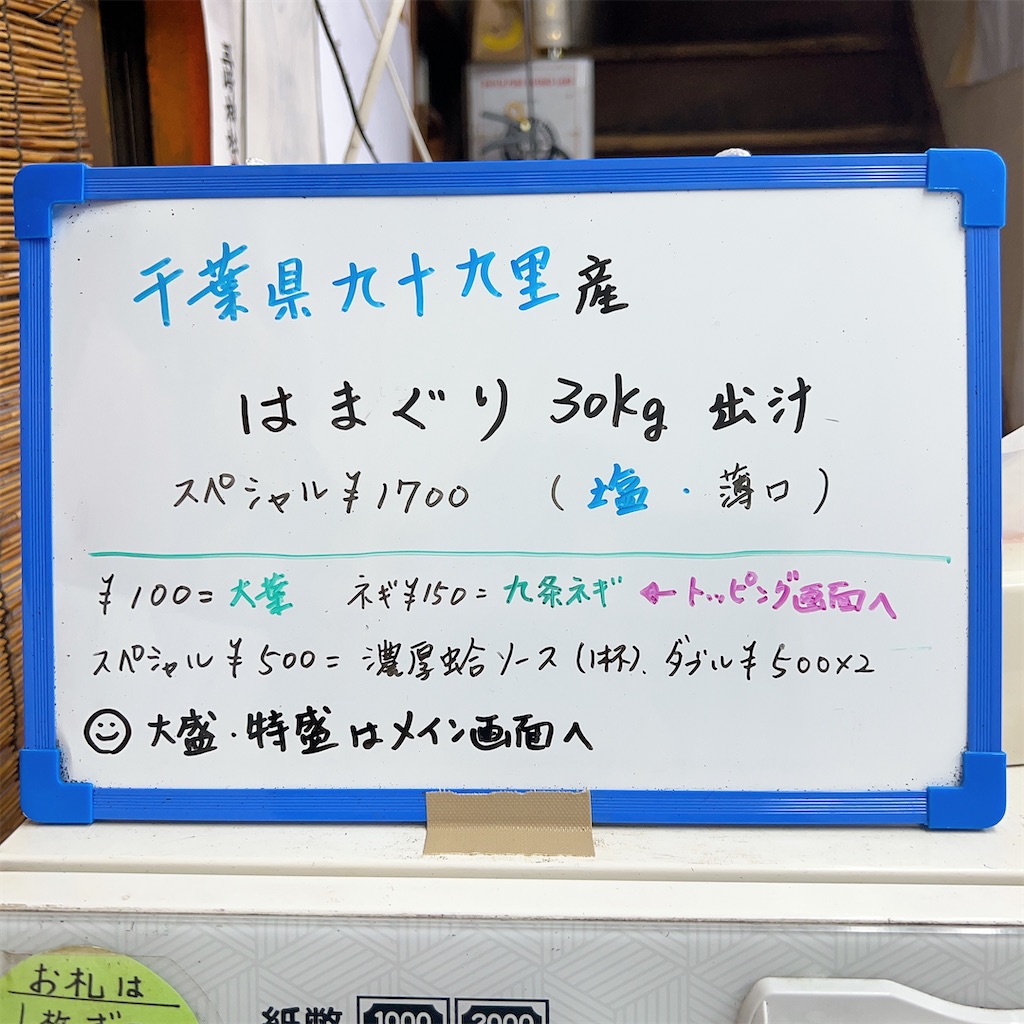 千葉県九十九里産
はまぐり 30kg 出汁
スペシャル ¥1700 (塩・薄口)
¥100=大葉 ネギ¥150=九条ネギ ←トッピング画面へ
スペシャル ¥500=濃厚蛤ソース(1杯)、ダブル ¥500×2
☺ 大盛・特盛はメイン画面へ
お札は
紙幣 1000 2000